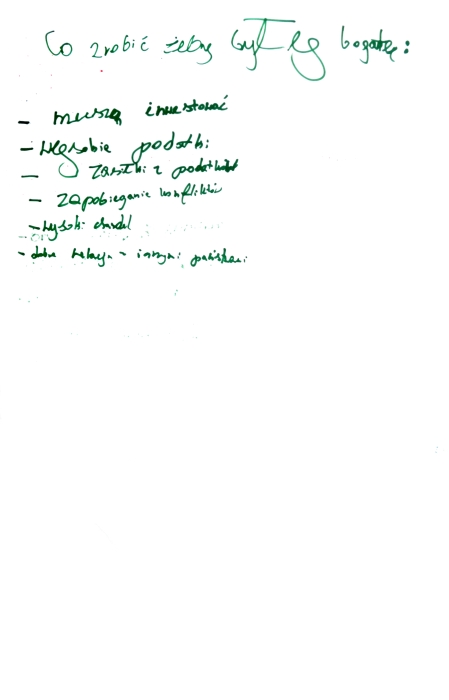 Co zrobić żeby był eg bogate:
- muszą inwestować
- podatki
- zasiłki z podatków
- zapobieganie konfliktów
- wysoki
- dobre relacje innymi państwami